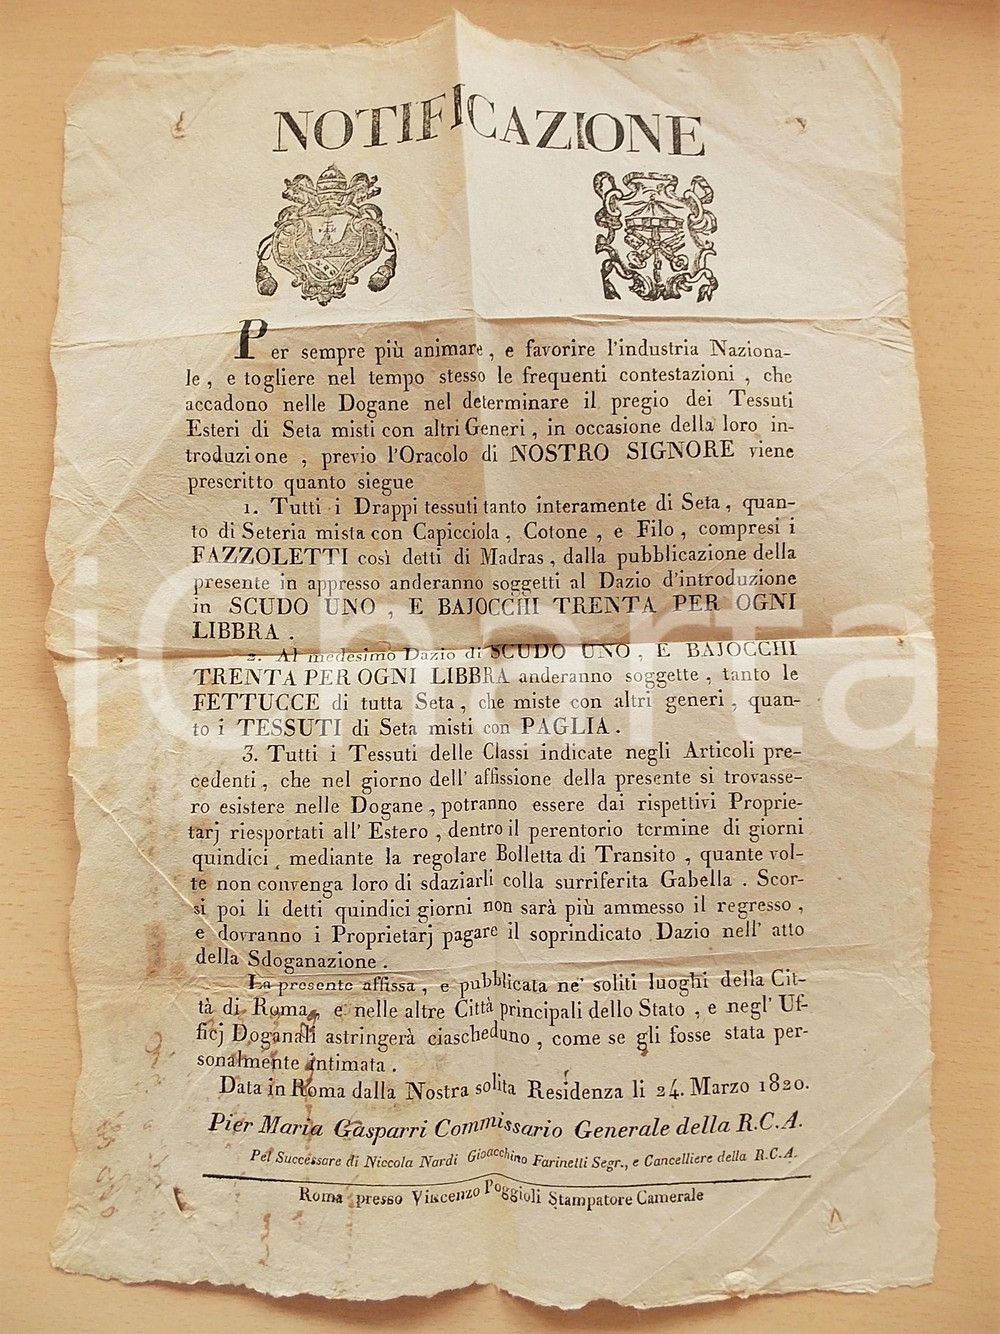 NOTIFICAZIONE
Per sempre più animare, e favorire l'industria Naziona-
le, e togliere nel tempo stesso le frequenti contestazioni, che
accadono nelle Dogane nel determinare il pregio dei Tessuti
Esteri di Seta misti con altri Generi, in occasione della loro in-
troduzione, previo l'Oracolo di NOSTRO SIGNORE viene
prescritto quanto siegue
1. Tutti i Drappi tessuti tanto interamente di Seta, quan-
to di Seteria mista con Capicciola, Cotone, e Filo, compresi i
FAZZOLETTI così detti di Madras, dalla pubblicazione della
presente in appresso anderanno soggetti al Dazio d'introduzione
in SCUDO UNO, E BAJOCCHI TRENTA PER OGNI
LIBBRA.
2. Al medesimo Dazio di SCUDO UNO, E BAJOCCHI
TRENTA PER OGNI LIBBRA anderanno soggette, tanto le
FETTUCCE di tutta Seta, che miste con altri generi, quan-
to i TESSUTI di Seta misti con PAGLIA.
3. Tutti i Tessuti delle Classi indicate negli Articoli pre-
cedenti, che nel giorno dell' affissione della presente si trovasse-
ro esistere nelle Dogane, potranno essere dai rispettivi Proprie-
tarj riesportati all' Estero, dentro il perentorio termine di giorni
quindici, mediante la regolare Bolletta di Transito, quante vol-
te non convenga loro di sdaziarli colla surriferita Gabella. Scor-
si poi li detti quindici giorni non sarà più ammesso il regresso,
e dovranno i Proprietarj pagare il soprindicato Dazio nell' atto
della Sdoganazione.
La presente affissa, e pubblicata ne' soliti luoghi della Cit-
tà di Roma, e nelle altre Città principali dello Stato, e negl' Uf-
ficj Doganali astringerà ciascheduno, come se gli fosse stata per-
sonalmente intimata.
Data in Roma dalla Nostra solita Residenza li 24. Marzo 1820.
Pier Maria Gasparri Commissario Generale della R.C.A.
Pel Successore di Niccola Nardi Gioacchino Farinelli Segr., e Cancelliere della R.C.A.
Roma presso Vincenzo Poggioli Stampatore Camerale
iCharta